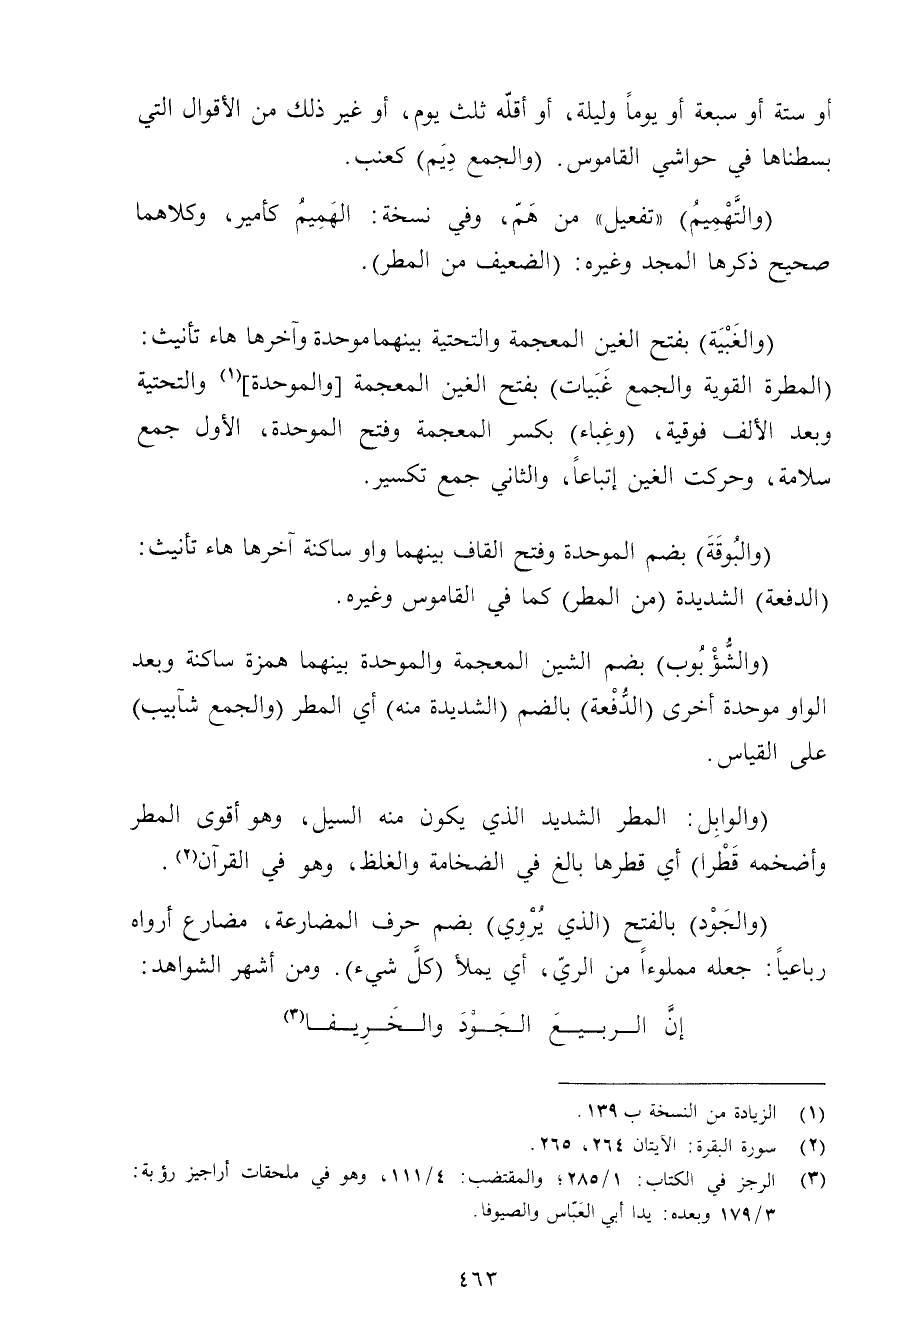 أو ستة أو سبعة أو يوماً وليلة، أو أقلّه ثلث يوم، أو غير ذلك من الأقوال التي
بسطناها في حواشي القاموس. (والجمع دِيَم) كعنب.
(والتَّهْمِيمُ) «تفعيل» من هَمّ، وفي نسخة: الهَمِيمُ كأمير، وكلاهما
صحيح ذكرها المجد وغيره: (الضعيف من المطر).
(والغَبْيَة) بفتح الغين المعجمة والتحتية بينهما موحدة وآخرها هاء تأنيث:
(المطرة القوية والجمع غَبَيات) بفتح الغين المعجمة [والموحدة](١) والتحتية
وبعد الألف فوقية، (وغِباء) بكسر المعجمة وفتح الموحدة، الأول جمع
سلامة، وحركت الغين إتباعاً، والثاني جمع تكسير.
(والبُوقَةَ) بضم الموحدة وفتح القاف بينهما واو ساكنة آخرها هاء تأنيث:
(الدفعة) الشديدة (من المطر) كما في القاموس وغيره.
(والشُّؤْبُوب) بضم الشين المعجمة والموحدة بينهما همزة ساكنة وبعد
الواو موحدة أخرى (الدُّفْعة) بالضم (الشديدة منه) أي المطر (والجمع شآبيب)
على القياس.
(والوابِل: المطر الشديد الذي يكون منه السيل، وهو أقوى المطر
وأضخمه قَطْرا) أي قطرها بالغ في الضخامة والغلظ، وهو في القرآن(٢).
(والجَوْد) بالفتح (الذي يُرْوِي) بضم حرف المضارعة، مضارع أرواه
رباعياً: جعله مملوءاً من الريّ، أي يملأ (كلَّ شيء). ومن أشهر الشواهد:
إنَّ الـربـيـعَ الـجَـوْدَ والـخَـرِيـفـا(٣)
(١) الزيادة من النسخة ب ١٣٩.
(٢) سورة البقرة: الآيتان ٢٦٤، ٢٦٥.
(٣) الرجز في الكتاب: ٢٨٥/١؛ والمقتضب: ١١١/٤، وهو في ملحقات أراجيز رؤبة:
١٧٩/٣ وبعده: يدا أبي العَبّاس والصيوفا.
٤٦٣